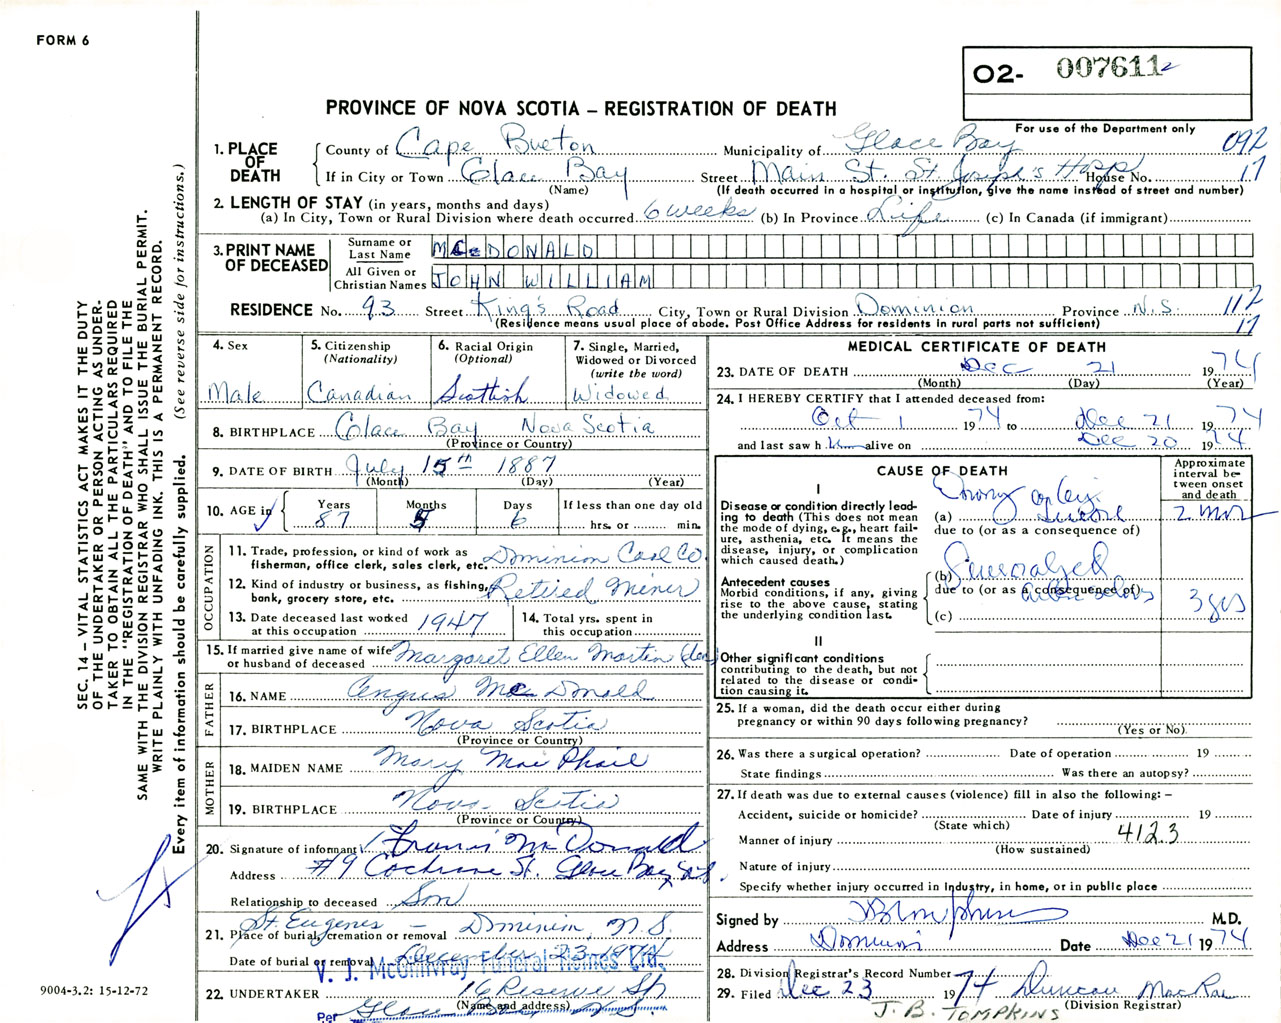 FORM 6
O2- 007611 2
PROVINCE OF NOVA SCOTIA – REGISTRATION OF DEATH
For use of the Department only
1. PLACE OF DEATH
County of Cape Breton Municipality of Glace Bay 092
If in City or Town Glace Bay Street Main St. St Joseph's Hosp House No. 17
(Name) (If death occurred in a hospital or institution, give the name instead of street and number)
2. LENGTH OF STAY (in years, months and days)
(a) In City, Town or Rural Division where death occurred 6 weeks (b) In Province Life (c) In Canada (if immigrant)
3. PRINT NAME OF DECEASED
Surname or Last Name McDONALD
All Given or Christian Names JOHN WILLIAM
RESIDENCE No. 93 Street King's Road City, Town or Rural Division Dominion Province N.S. 112
(Residence means usual place of abode. Post Office Address for residents in rural parts not sufficient) 17
4. Sex Male
5. Citizenship (Nationality) Canadian
6. Racial Origin (Optional) Scottish
7. Single, Married, Widowed or Divorced (write the word) Widowed
8. BIRTHPLACE Glace Bay Nova Scotia
(Province or Country)
9. DATE OF BIRTH July 15th 1887
(Month) (Day) (Year)
10. AGE in Years 87 Months 5 Days 6 If less than one day old hrs. or min.
OCCUPATION
11. Trade, profession, or kind of work as fisherman, office clerk, sales clerk, etc. Dominion Coal Co.
12. Kind of industry or business, as fishing, bank, grocery store, etc. Retired Miner
13. Date deceased last worked at this occupation 1947
14. Total yrs. spent in this occupation
15. If married give name of wife or husband of deceased Margaret Ellen Martin
FATHER
16. NAME Angus MacDonald
17. BIRTHPLACE Nova Scotia
(Province or Country)
MOTHER
18. MAIDEN NAME Mary MacPhail
19. BIRTHPLACE Nova Scotia
(Province or Country)
20. Signature of informant Francis McDonald
Address #9 Cochrane St. Glace Bay N.S.
Relationship to deceased Son
21. Place of burial, cremation or removal St. Eugenes – Dominion, N.S.
Date of burial or removal December 23 1974
V. J. McGillivray Funeral Homes Ltd.
22. UNDERTAKER 16 Reserve St
(Name and address)
Per Glace Bay N.S.
MEDICAL CERTIFICATE OF DEATH
23. DATE OF DEATH Dec 21 1974
(Month) (Day) (Year)
24. I HEREBY CERTIFY that I attended deceased from:
Oct 1 1974 to Dec 21 1974
and last saw h im alive on Dec 20 1974
CAUSE OF DEATH
Approximate interval between onset and death
I
Disease or condition directly leading to death (This does not mean the mode of dying, e.g., heart failure, asthenia, etc. It means the disease, injury, or complication which caused death.)
(a) 2 mos
due to (or as a consequence of)
Antecedent causes
Morbid conditions, if any, giving rise to the above cause, stating the underlying condition last.
(b) Generalized
due to (or as a consequence of) 3 yrs
(c)
II
Other significant conditions contributing to the death, but not related to the disease or condition causing it.
25. If a woman, did the death occur either during pregnancy or within 90 days following pregnancy?
(Yes or No)
26. Was there a surgical operation? Date of operation 19
State findings Was there an autopsy?
27. If death was due to external causes (violence) fill in also the following: –
Accident, suicide or homicide? Date of injury 19
(State which)
Manner of injury 4123
(How sustained)
Nature of injury
Specify whether injury occurred in Industry, in home, or in public place
Signed by M.D.
Address Dominion Date Dec 21 1974
28. Division Registrar's Record Number
29. Filed Dec 23 1974 Duncan MacRae
(Division Registrar)
J. B. TOMPKINS
SEC. 14 – VITAL STATISTICS ACT MAKES IT THE DUTY
OF THE UNDERTAKER OR PERSON ACTING AS UNDER-
TAKER TO OBTAIN ALL THE PARTICULARS REQUIRED
IN THE "REGISTRATION OF DEATH" AND TO FILE THE
SAME WITH THE DIVISION REGISTRAR WHO SHALL ISSUE THE BURIAL PERMIT.
WRITE PLAINLY WITH UNFADING INK. THIS IS A PERMANENT RECORD.
Every item of information should be carefully supplied. (See reverse side for instructions.)
9004-3.2: 15-12-72